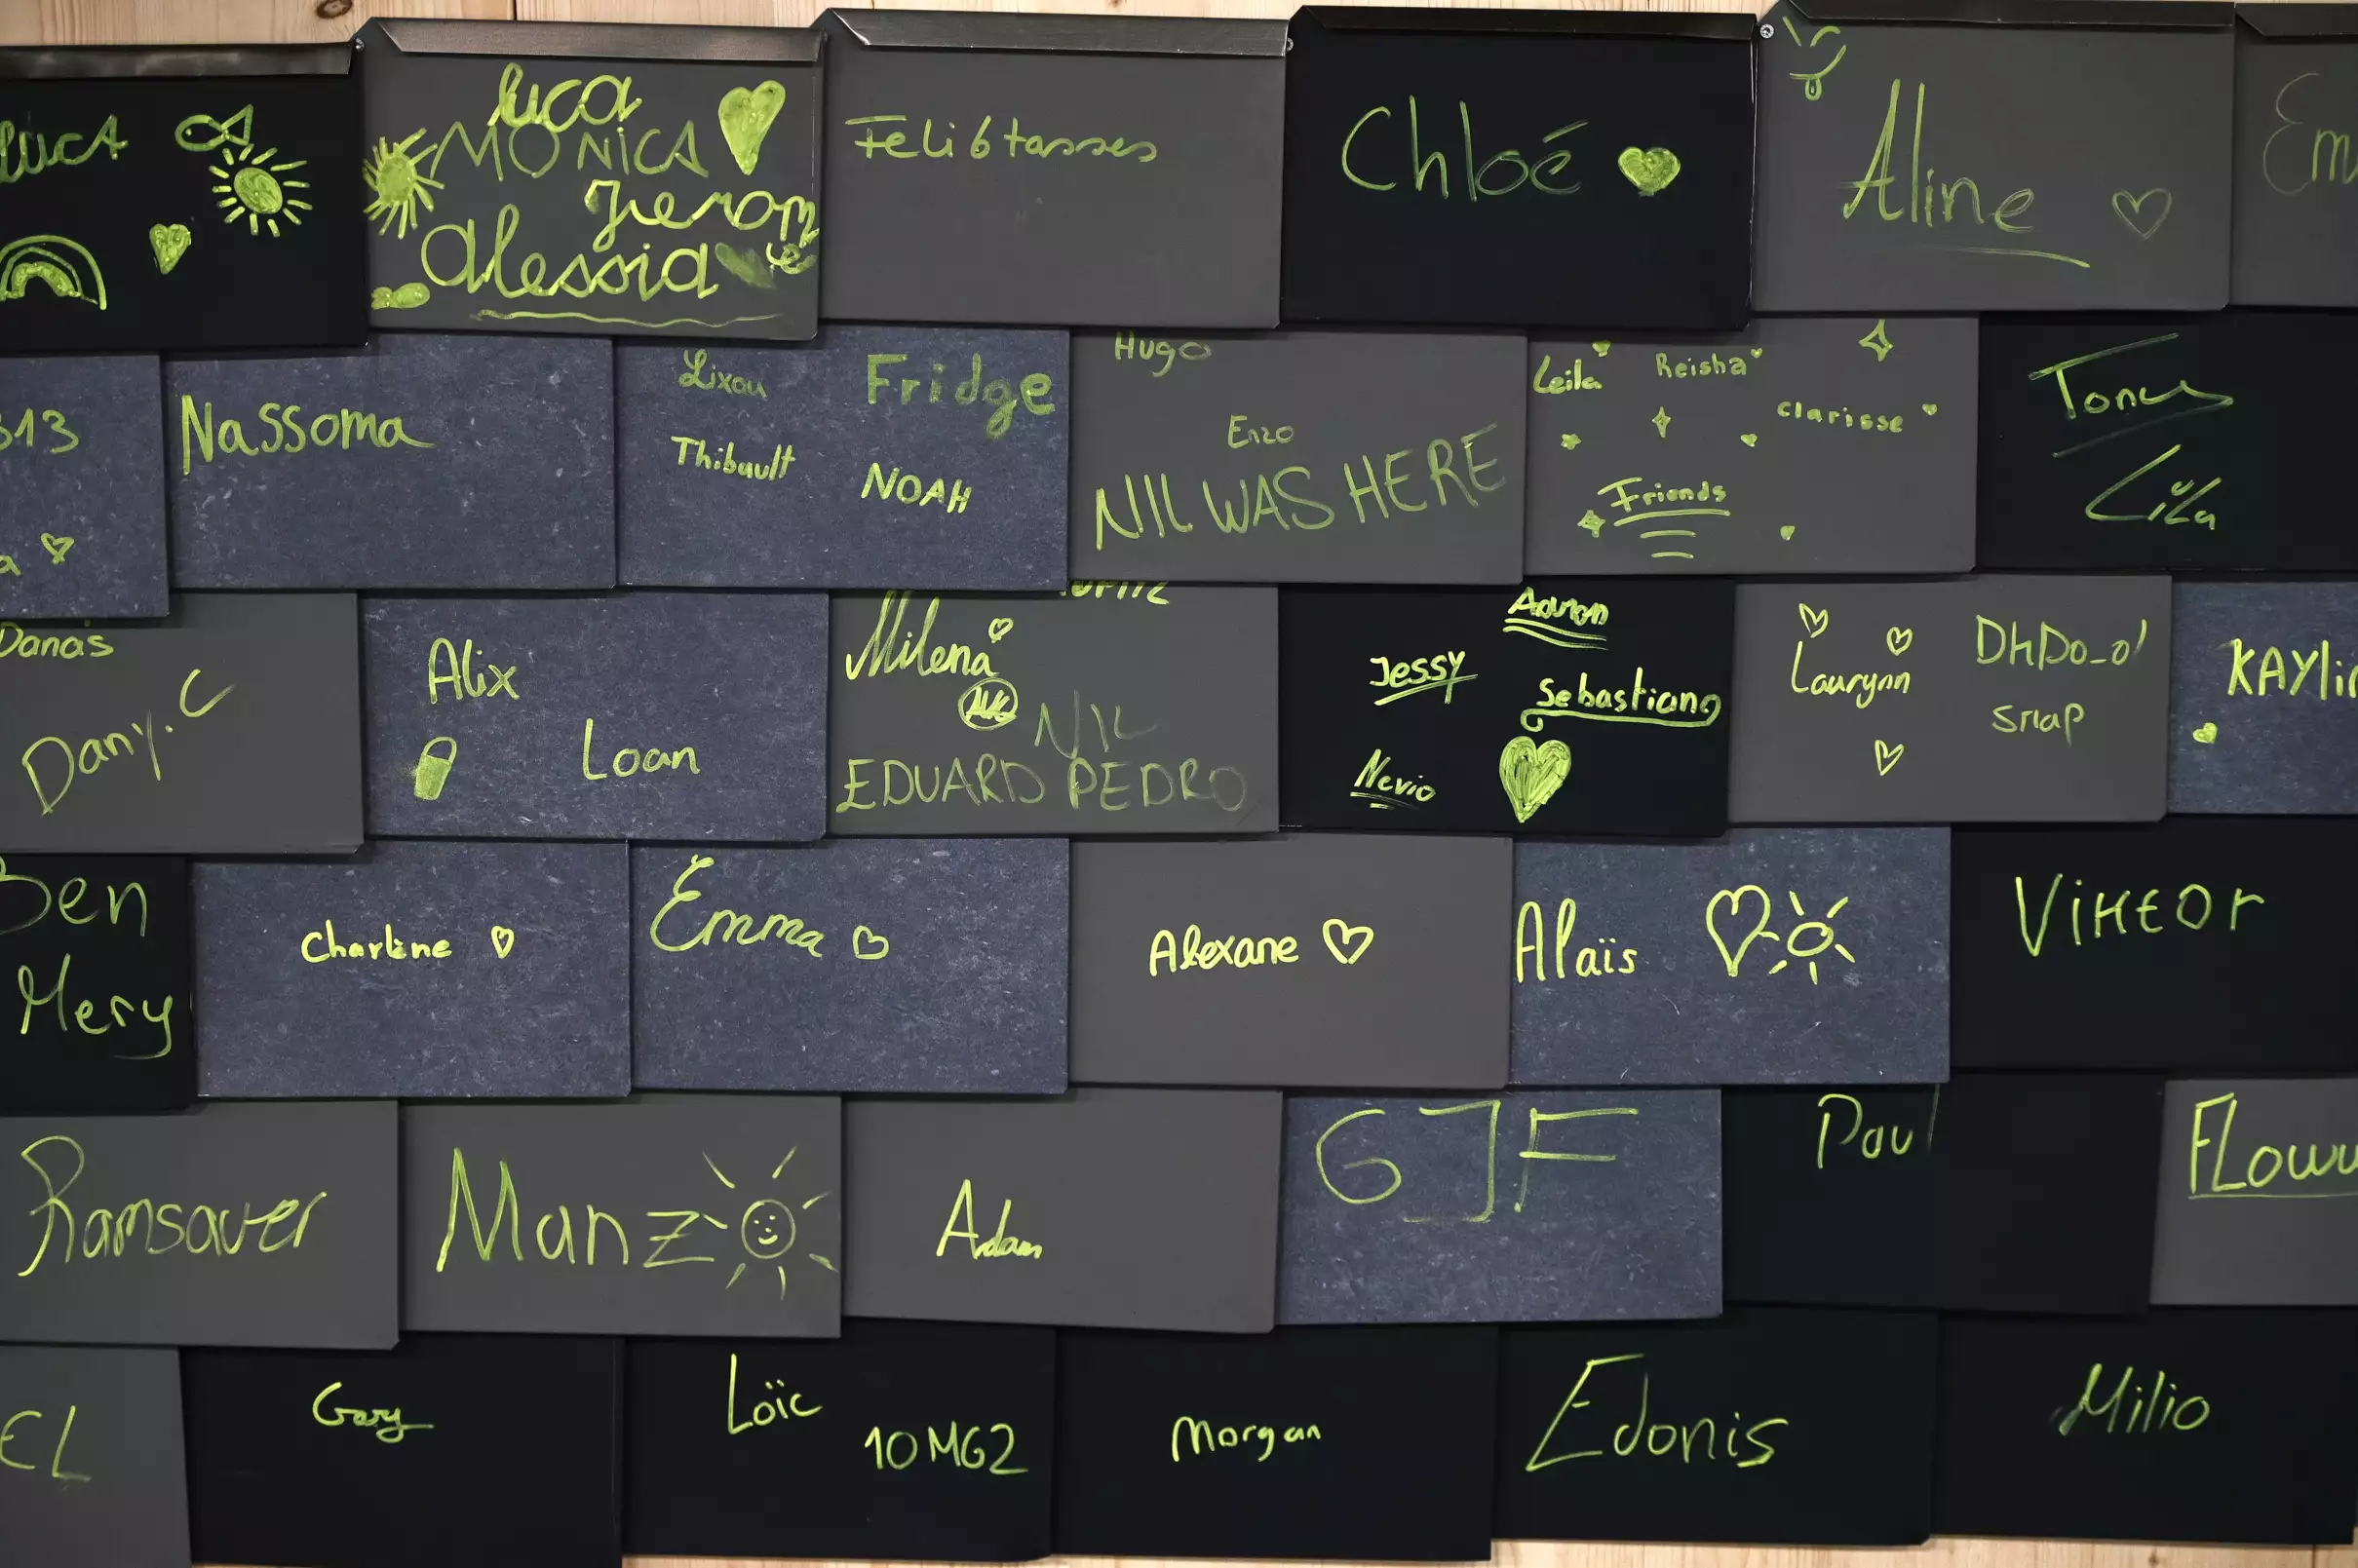 LUCA
luca
MONICA
Jerom
alessia
Feli6tasses
Chloé
Aline
Em
313
a
Nassoma
Lixou
Fridge
Thibault
NOAH
Hugo
Enzo
NIL WAS HERE
Leila
Reisha
clarisse
Friends
Lila
Danas
Dany.C
Alix
Loan
Milena
NIL
EDUARD PEDRO
Aaron
Jessy
Sebastiano
Nevio
Laurynn
DhDo_o'
snap
KAYlin
Ben
Mery
Charlène
Emma
Alexane
Alaïs
Viktor
Ramsauer
Manz
Adam
GJF
Paul
FLowu
EL
Gary
Loïc
10MG2
Morgan
Edonis
Milio